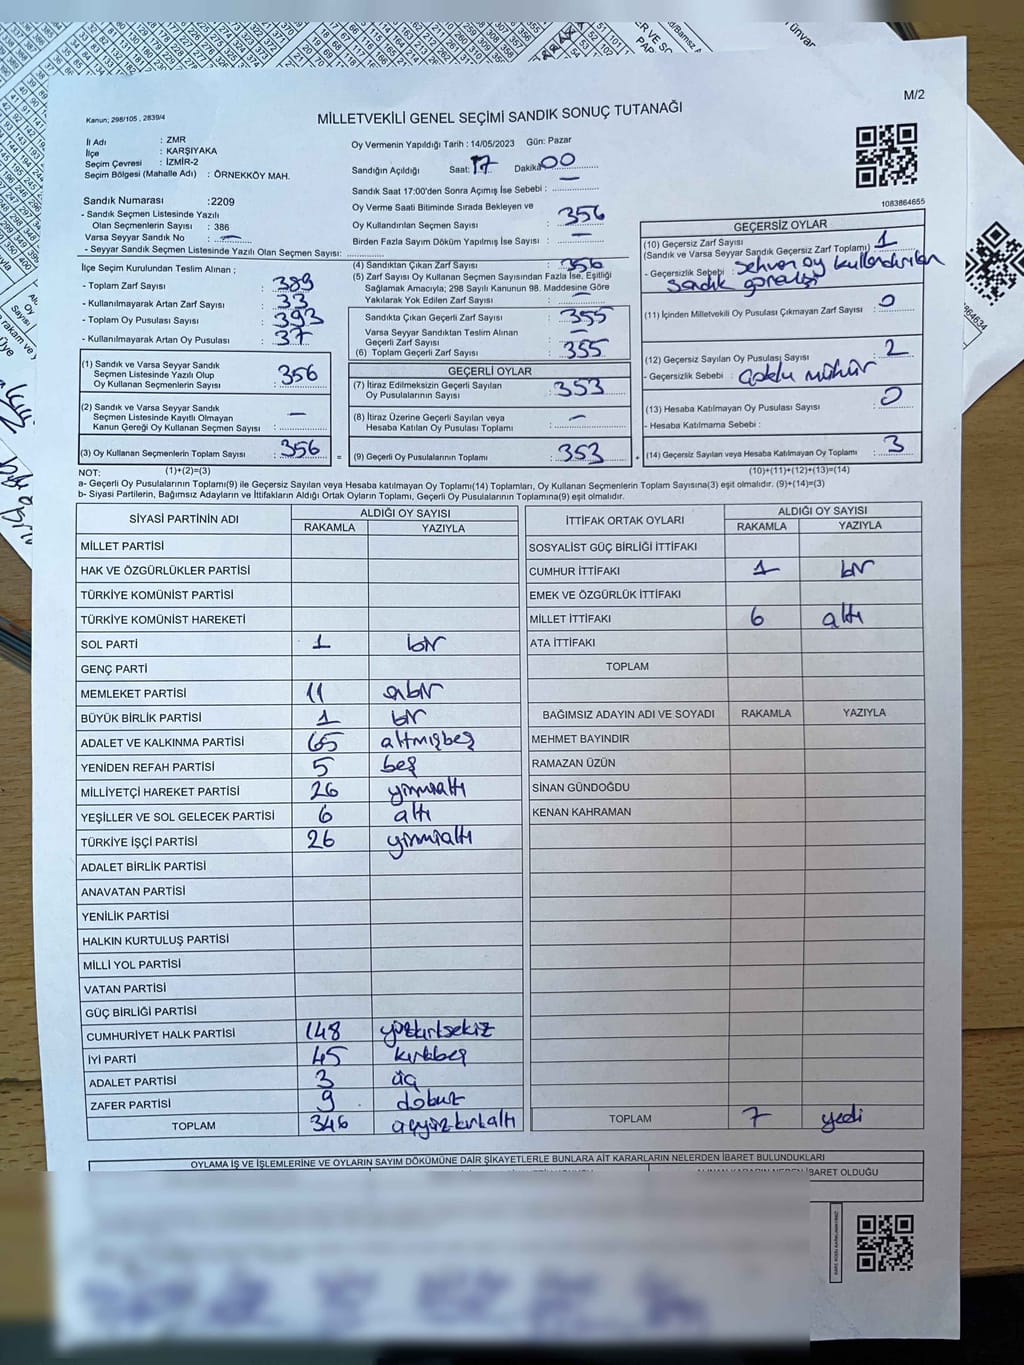 M/2
Kanun; 298/105 , 2839/4
MİLLETVEKİLİ GENEL SEÇİMİ SANDIK SONUÇ TUTANAĞI
İl Adı : ZMR
İlçe : KARŞIYAKA
Seçim Çevresi : İZMİR-2
Seçim Bölgesi (Mahalle Adı) : ÖRNEKKÖY MAH.
Sandık Numarası :2209
- Sandık Seçmen Listesinde Yazılı
Olan Seçmenlerin Sayısı : 386
Varsa Seyyar Sandık No : —
- Seyyar Sandık Seçmen Listesinde Yazılı Olan Seçmen Sayısı:
Oy Vermenin Yapıldığı Tarih : 14/05/2023 Gün: Pazar
Sandığın Açıldığı Saat: 17 Dakika 00
Sandık Saat 17:00'den Sonra Açımış İse Sebebi : —
Oy Verme Saati Bitiminde Sırada Bekleyen ve
Oy Kullandırılan Seçmen Sayısı : 356
Birden Fazla Sayım Döküm Yapılmış İse Sayısı : —
1083864655
İlçe Seçim Kurulundan Teslim Alınan ;
- Toplam Zarf Sayısı : 389
- Kullanılmayarak Artan Zarf Sayısı : 33
- Toplam Oy Pusulası Sayısı : 393
- Kullanılmayarak Artan Oy Pusulası : 37
(1) Sandık ve Varsa Seyyar Sandık
Seçmen Listesinde Yazılı Olup
Oy Kullanan Seçmenlerin Sayısı : 356
(2) Sandık ve Varsa Seyyar Sandık
Seçmen Listesinde Kayıtlı Olmayan
Kanun Gereği Oy Kullanan Seçmen Sayısı : —
(3) Oy Kullanan Seçmenlerin Toplam Sayısı : 356 =
(4) Sandıktan Çıkan Zarf Sayısı : 356
(5) Zarf Sayısı Oy Kullanan Seçmen Sayısından Fazla İse, Eşitliği
Sağlamak Amacıyla; 298 Sayılı Kanunun 98. Maddesine Göre
Yakılarak Yok Edilen Zarf Sayısı : —
Sandıkta Çıkan Geçerli Zarf Sayısı : 355
Varsa Seyyar Sandıktan Teslim Alınan
Geçerli Zarf Sayısı : —
(6) Toplam Geçerli Zarf Sayısı : 355
GEÇERLİ OYLAR
(7) İtiraz Edilmeksizin Geçerli Sayılan
Oy Pusulalarının Sayısı : 353
(8) İtiraz Üzerine Geçerli Sayılan veya
Hesaba Katılan Oy Pusulası Toplamı : —
(9) Geçerli Oy Pusulalarının Toplamı : 353 +
GEÇERSİZ OYLAR
(10) Geçersiz Zarf Sayısı
(Sandık ve Varsa Seyyar Sandık Geçersiz Zarf Toplamı) : 1
- Geçersizlik Sebebi : sehven oy kullandırılan
sandık görevlisi
(11) İçinden Milletvekili Oy Pusulası Çıkmayan Zarf Sayısı : 0
(12) Geçersiz Sayılan Oy Pusulası Sayısı : 2
- Geçersizlik Sebebi : mühür
(13) Hesaba Katılmayan Oy Pusulası Sayısı : 0
- Hesaba Katılmama Sebebi :
(14) Geçersiz Sayılan veya Hesaba Katılmayan Oy Toplamı : 3
NOT: (1)+(2)=(3) (10)+(11)+(12)+(13)=(14)
a- Geçerli Oy Pusulalarının Toplamı(9) ile Geçersiz Sayılan veya Hesaba katılmayan Oy Toplamı(14) Toplamları, Oy Kullanan Seçmenlerin Toplam Sayısına(3) eşit olmalıdır. (9)+(14)=(3)
b- Siyasi Partilerin, Bağımsız Adayların ve İttifakların Aldığı Ortak Oyların Toplamı, Geçerli Oy Pusulalarının Toplamına(9) eşit olmalıdır.
SİYASİ PARTİNİN ADI ALDIĞI OY SAYISI
RAKAMLA YAZIYLA
MİLLET PARTİSİ
HAK VE ÖZGÜRLÜKLER PARTİSİ
TÜRKİYE KOMÜNİST PARTİSİ
TÜRKİYE KOMÜNİST HAREKETİ
SOL PARTİ 1 bir
GENÇ PARTİ
MEMLEKET PARTİSİ 11 onbir
BÜYÜK BİRLİK PARTİSİ 1 bir
ADALET VE KALKINMA PARTİSİ 65 altmışbeş
YENİDEN REFAH PARTİSİ 5 beş
MİLLİYETÇİ HAREKET PARTİSİ 26 yirmialtı
YEŞİLLER VE SOL GELECEK PARTİSİ 6 altı
TÜRKİYE İŞÇİ PARTİSİ 26 yirmialtı
ADALET BİRLİK PARTİSİ
ANAVATAN PARTİSİ
YENİLİK PARTİSİ
HALKIN KURTULUŞ PARTİSİ
MİLLİ YOL PARTİSİ
VATAN PARTİSİ
GÜÇ BİRLİĞİ PARTİSİ
CUMHURİYET HALK PARTİSİ 148 yüzkırksekiz
İYİ PARTİ 45 kırkbeş
ADALET PARTİSİ 3 üç
ZAFER PARTİSİ 9 dokuz
TOPLAM 346 üçyüzkırkaltı
İTTİFAK ORTAK OYLARI ALDIĞI OY SAYISI
RAKAMLA YAZIYLA
SOSYALİST GÜÇ BİRLİĞİ İTTİFAKI
CUMHUR İTTİFAKI 1 bir
EMEK VE ÖZGÜRLÜK İTTİFAKI
MİLLET İTTİFAKI 6 altı
ATA İTTİFAKI
TOPLAM
BAĞIMSIZ ADAYIN ADI VE SOYADI RAKAMLA YAZIYLA
MEHMET BAYINDIR
RAMAZAN ÜZÜN
SİNAN GÜNDOĞDU
KENAN KAHRAMAN
TOPLAM 7 yedi
OYLAMA İŞ VE İŞLEMLERİNE VE OYLARIN SAYIM DÖKÜMÜNE DAİR ŞİKAYETLERLE BUNLARA AİT KARARLARIN NELERDEN İBARET BULUNDUKLARI
İBARET OLDUĞU